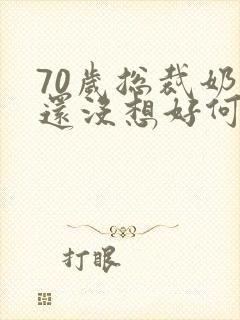 70歲总裁奶
還没想好何
打眼